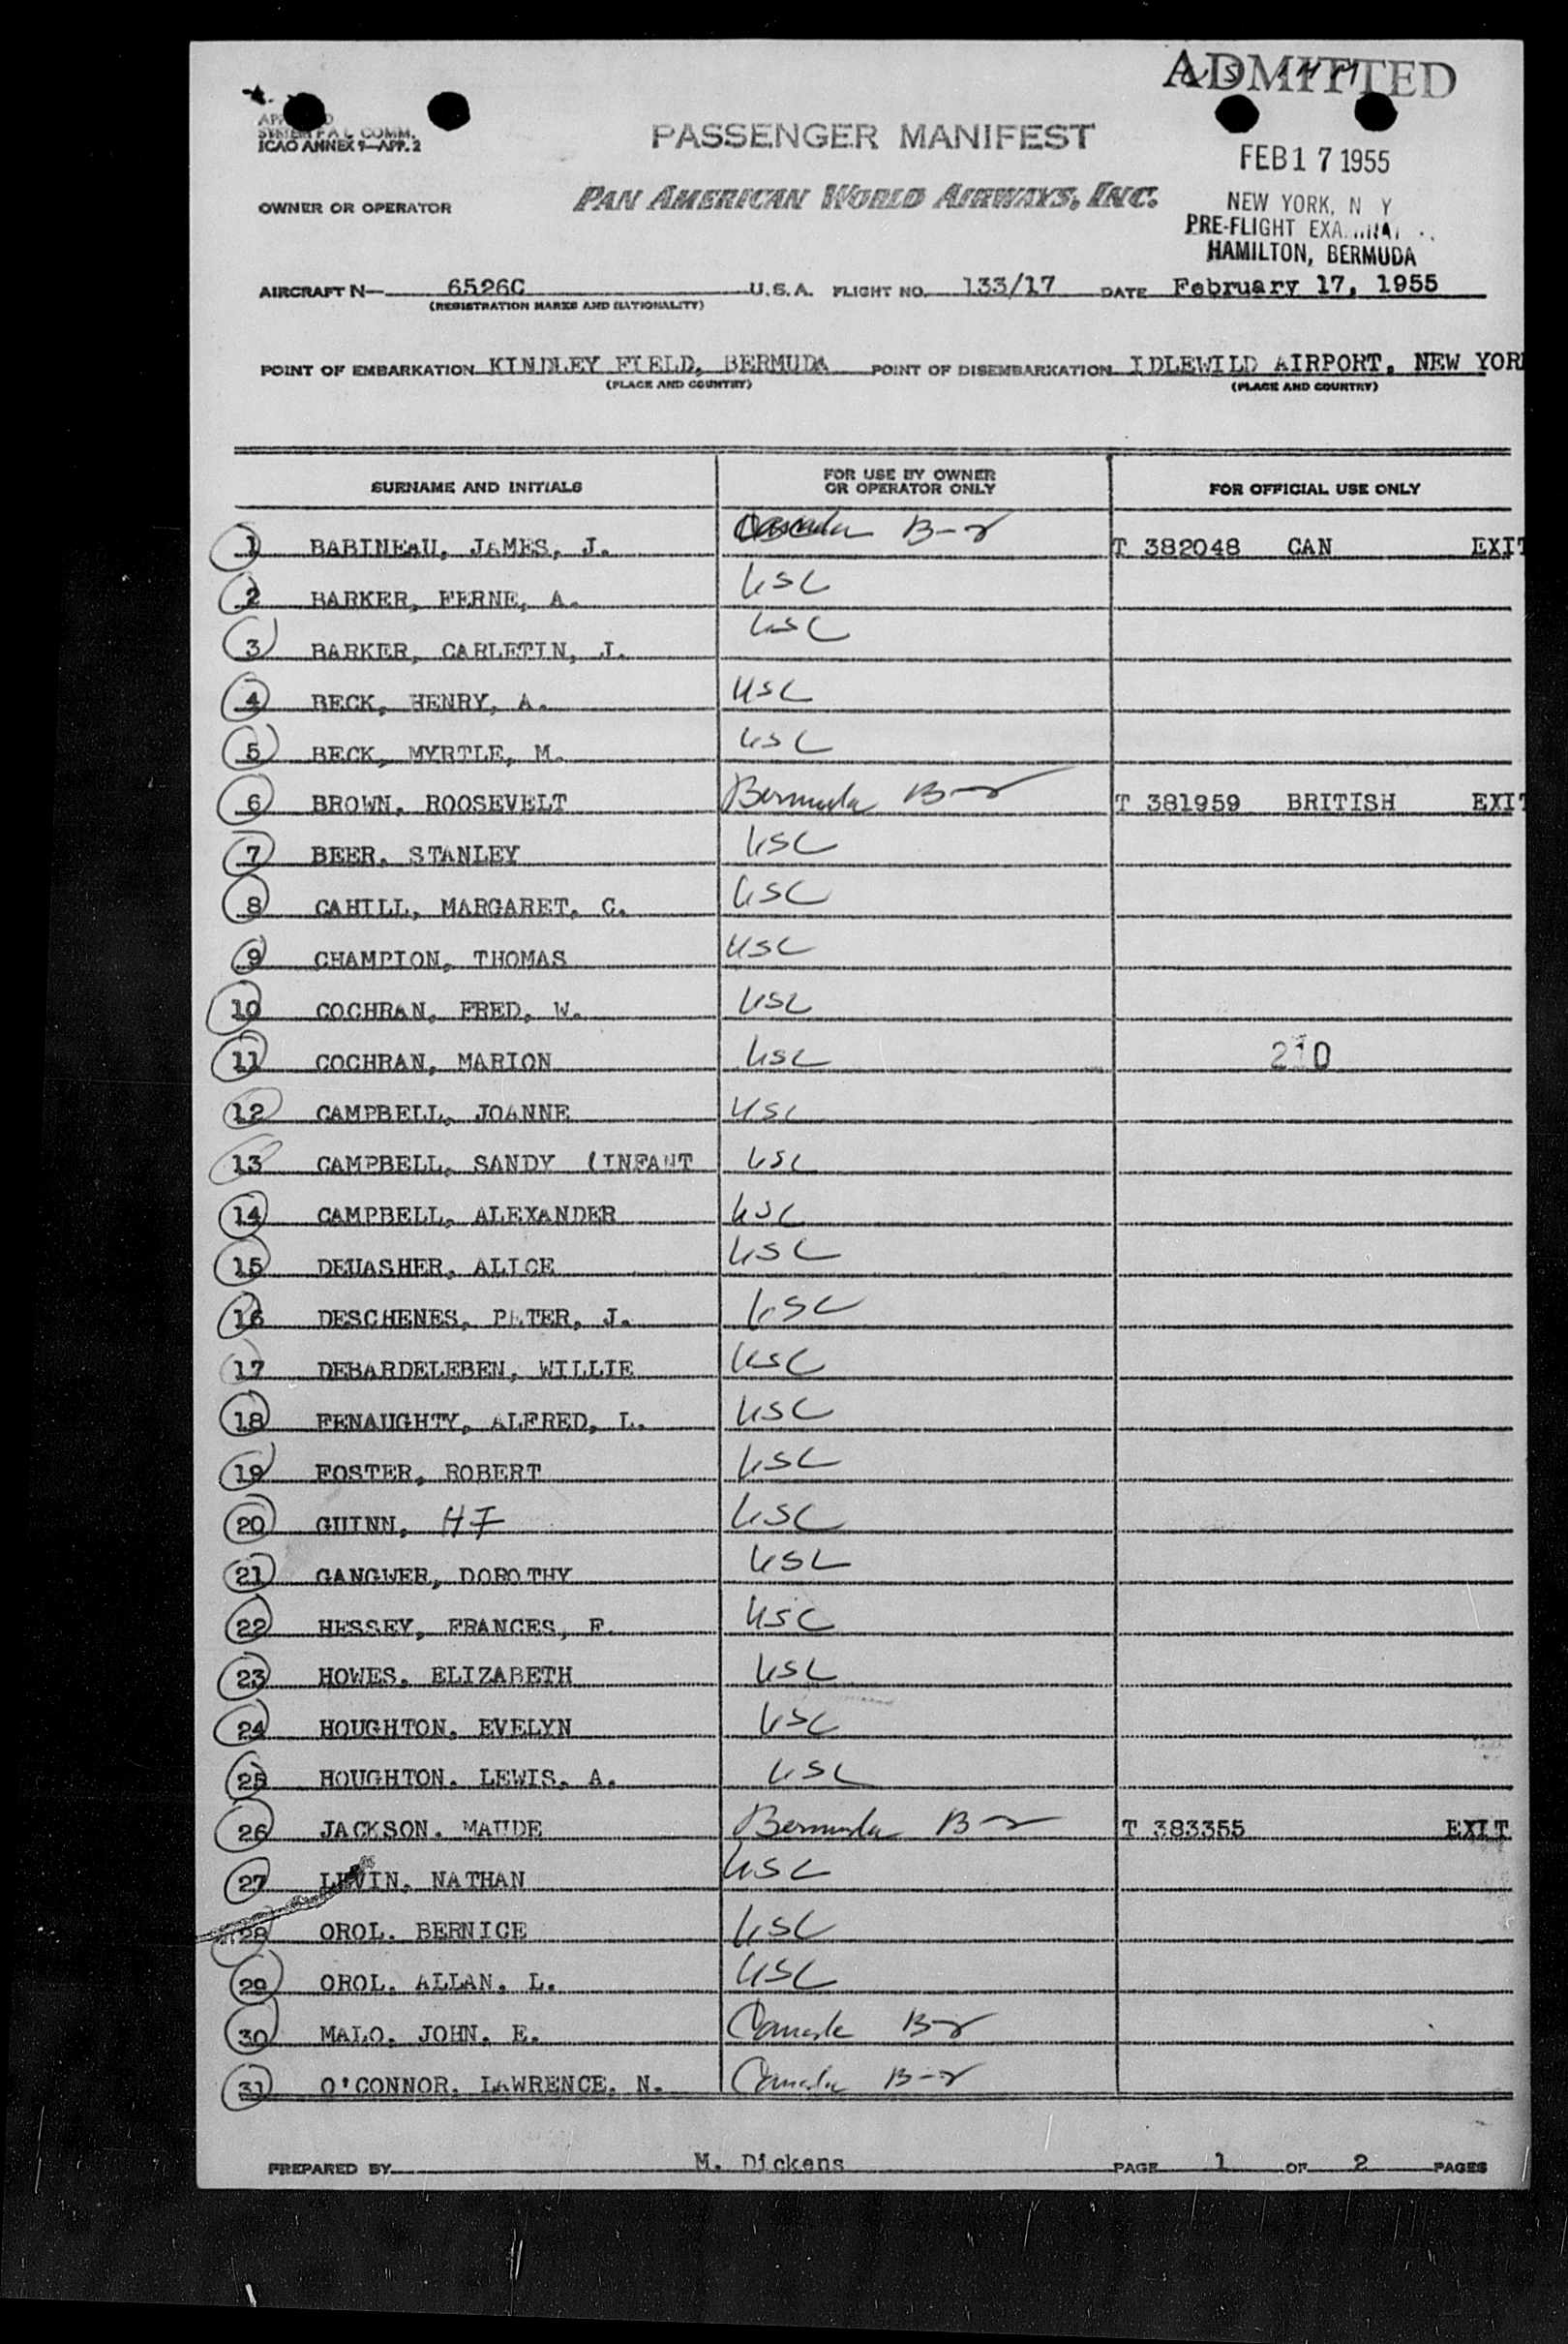 ADMITTED
PASSENGER MANIFEST
ICAO ANNEX 9—APP. 2
FEB 17 1955
OWNER OR OPERATOR PAN AMERICAN WORLD AIRWAYS, INC.
NEW YORK, N Y
PRE-FLIGHT
HAMILTON, BERMUDA
AIRCRAFT N— 6526C U.S.A. FLIGHT NO. 133/17 DATE February 17, 1955
(REGISTRATION MARKS AND NATIONALITY)
POINT OF EMBARKATION KINDLEY FIELD, BERMUDA POINT OF DISEMBARKATION IDLEWILD AIRPORT, NEW YOR
(PLACE AND COUNTRY) (PLACE AND COUNTRY)
SURNAME AND INITIALS FOR USE BY OWNER OR OPERATOR ONLY FOR OFFICIAL USE ONLY
1 BABINEAU, JAMES, J. Canada B-2 T 382048 CAN EXIT
2 BARKER, FERNE, A. USC
3 BARKER, CARLETIN, J. USC
4 BECK, HENRY, A. USC
5 BECK, MYRTLE, M. USC
6 BROWN, ROOSEVELT Bermuda B-2 T 381959 BRITISH EXIT
7 BEER, STANLEY USC
8 CAHILL, MARGARET, C. USC
9 CHAMPION, THOMAS USC
10 COCHRAN, FRED, W. USC
11 COCHRAN, MARION USC 210
12 CAMPBELL, JOANNE USC
13 CAMPBELL, SANDY (INFANT USC
14 CAMPBELL, ALEXANDER USC
15 DEUASHER, ALICE USC
16 DESCHENES, PETER, J. USC
17 DEBARDELEBEN, WILLIE USC
18 FENAUGHTY, ALFRED, L. USC
19 FOSTER, ROBERT USC
20 GUINN, HF USC
21 GANGWER, DOROTHY USC
22 HESSEY, FRANCES, F. USC
23 HOWES, ELIZABETH USC
24 HOUGHTON, EVELYN USC
25 HOUGHTON, LEWIS, A. USC
26 JACKSON, MAUDE Bermuda B-2 T 383355 EXIT
27 LEVIN, NATHAN USC
28 OROL, BERNICE USC
29 OROL, ALLAN, L. USC
30 MALO, JOHN, E. Canada B-2
31 O'CONNOR, LAWRENCE, N. Canada B-2
PREPARED BY M. Dickens PAGE 1 OF 2 PAGES